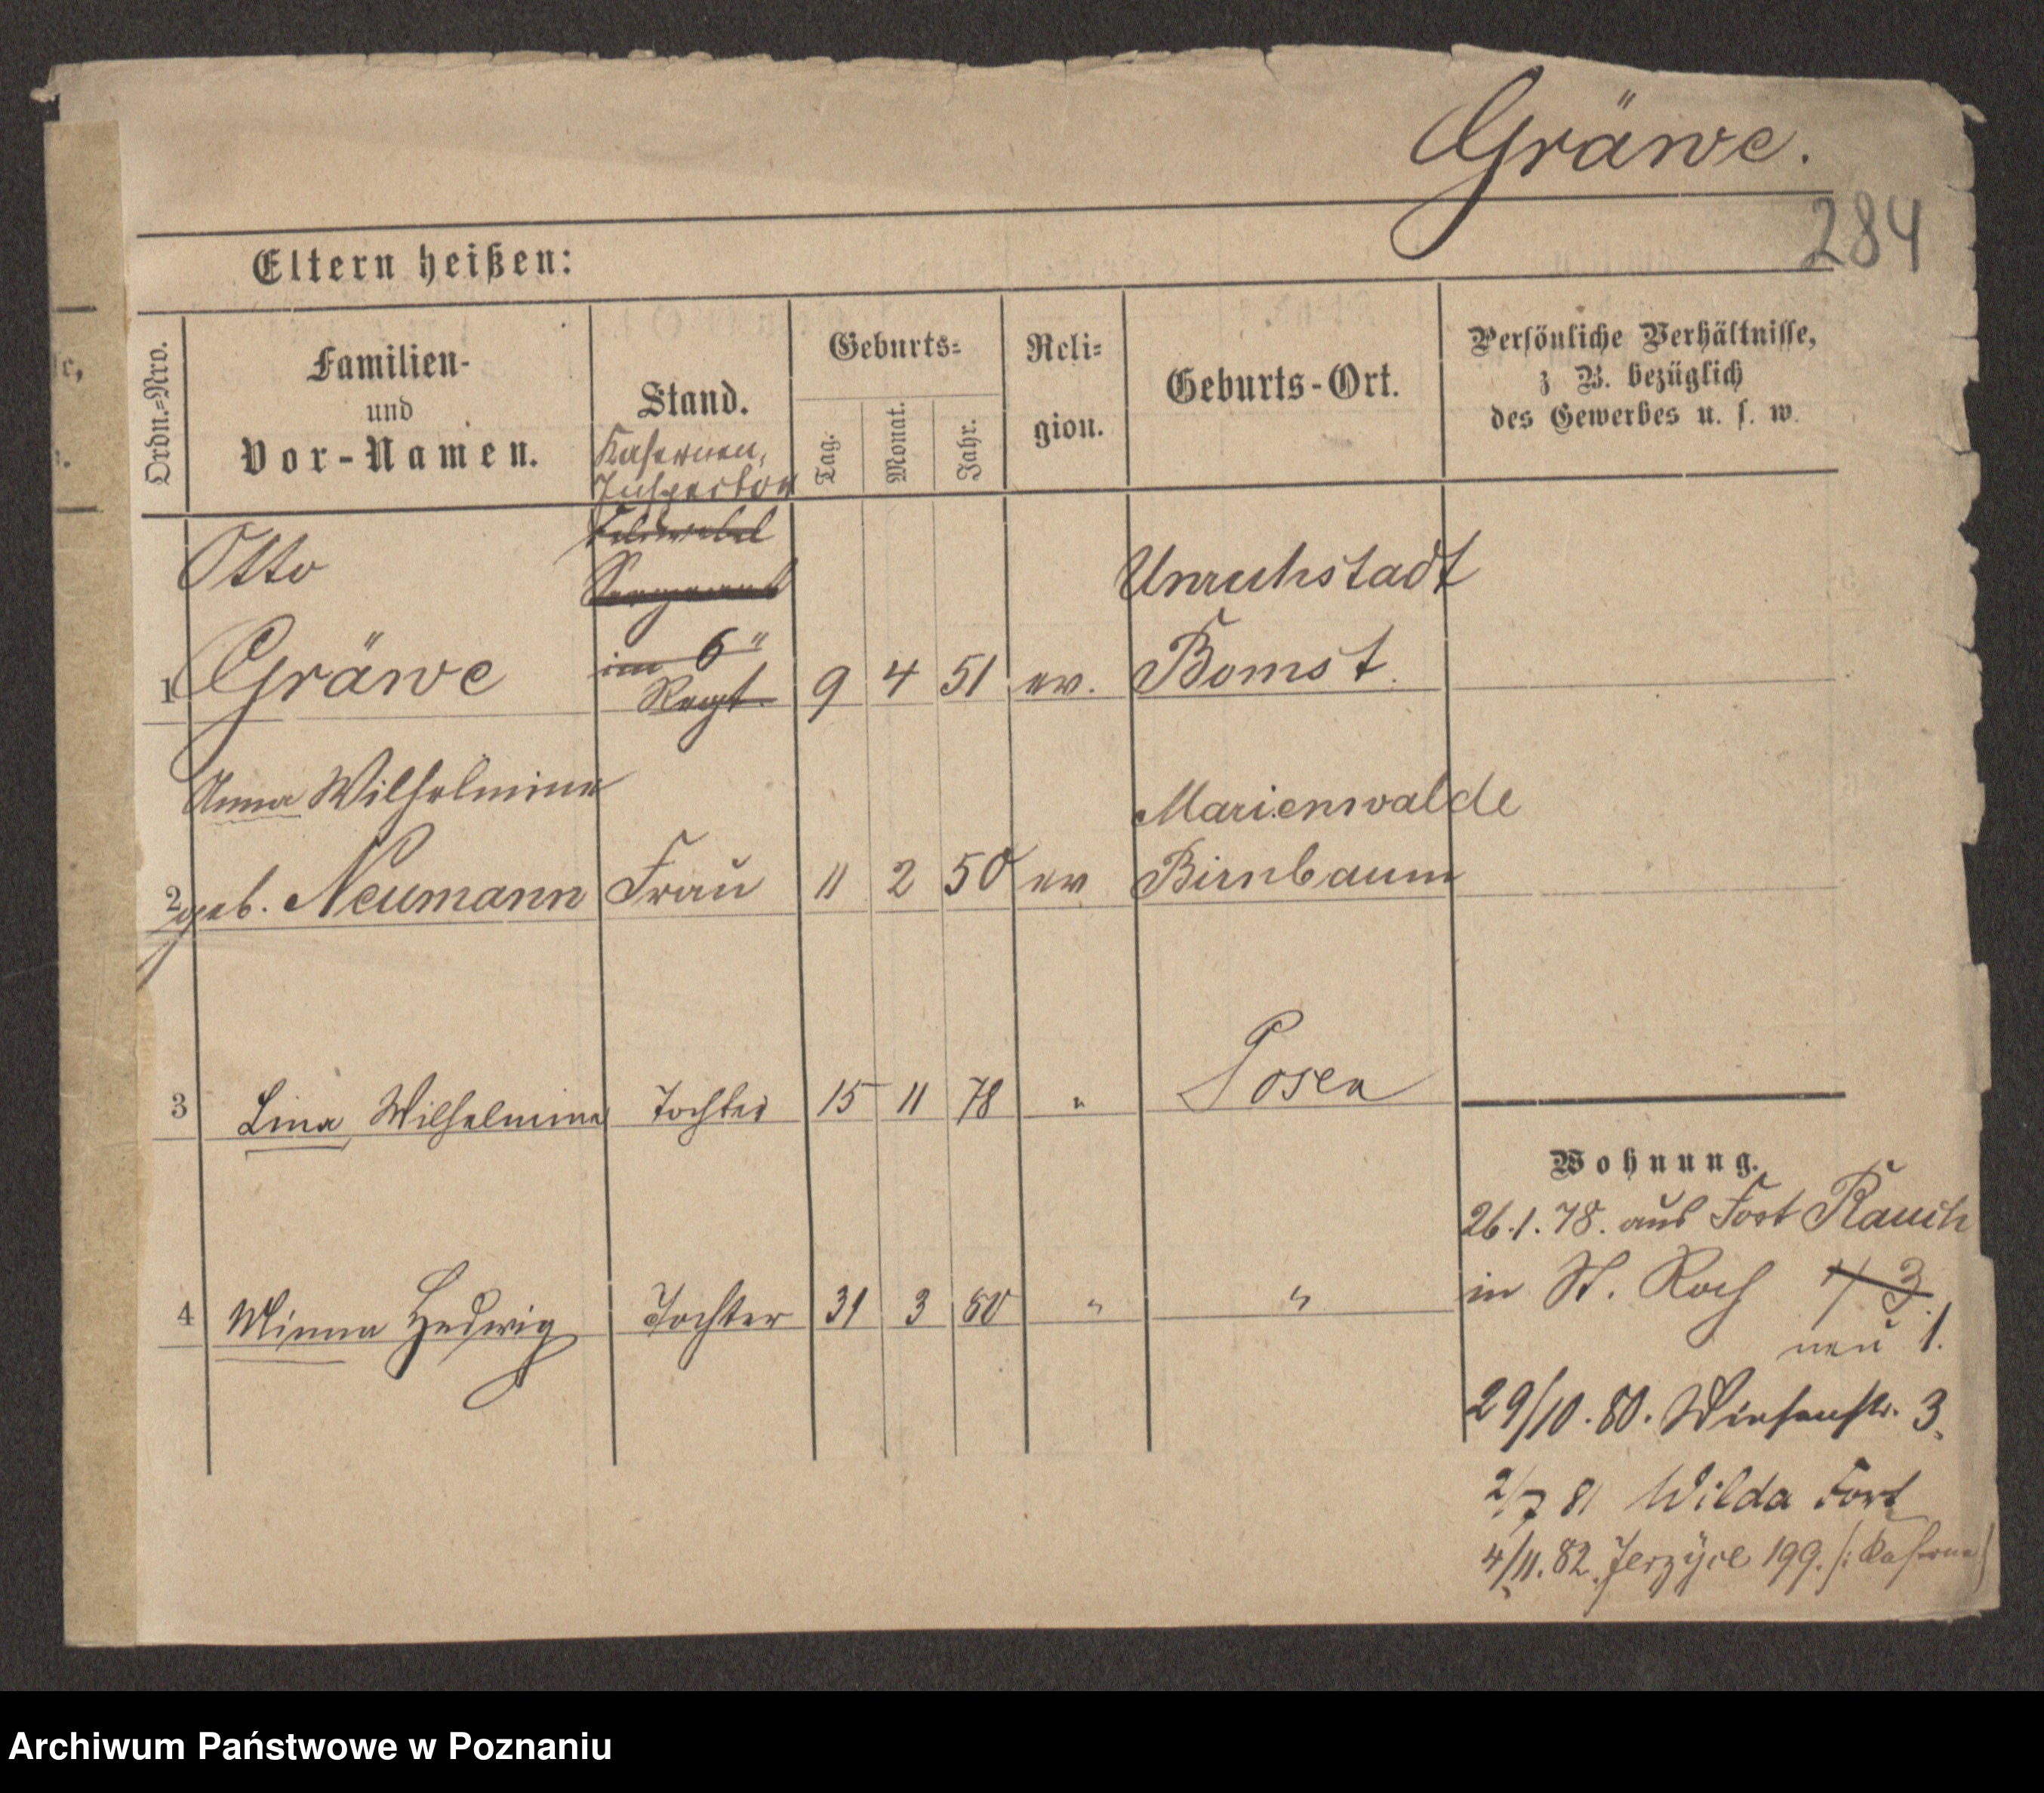 Gräwe.
284
Eltern heißen:
Ordn.=Nro.
Familien-
und
Vor-Namen.
Stand.
Geburts=
Tag.
Monat.
Jahr.
Reli=
gion.
Geburts-Ort.
Persönliche Verhältnisse,
z B. bezüglich
des Gewerbes u. s. w.
Kasernen,
Inspector
Feldwebel
Sergeant
Otto
Unruhstadt
im 6"
1 Gräwe Regt. 9 4 51 ev. Bomst.
Anna Wilhelmine
Marienwalde
2 geb. Neumann Frau 11 2 50 ev Birnbaum
3 Lina Wilhelmine Tochter 15 11 78 " Posen
4 Minna Hedwig Tochter 31 3 80 " "
Wohnung.
26.1.78. aus Fort Rauch
in St. Roch 3
neu 1.
29/10.80. Wiesenstr. 3.
2/7 81 Wilda Fort
4/11.82. Jerzÿce 199. (: Kaserne)
Archiwum Państwowe w Poznaniu